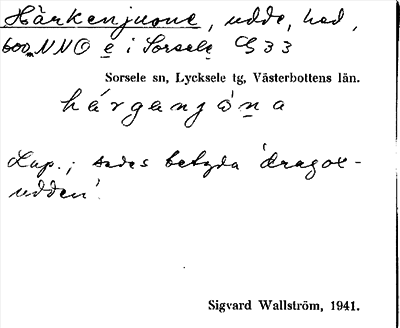 Härkenjuone, udde, had,
600 m NNO e i Sorsele G 33
Sorsele sn, Lycksele tg, Västerbottens län.
hárganjòna
Lap.; sades betyda 'dragox-
udden'.
Sigvard Wallström, 1941.